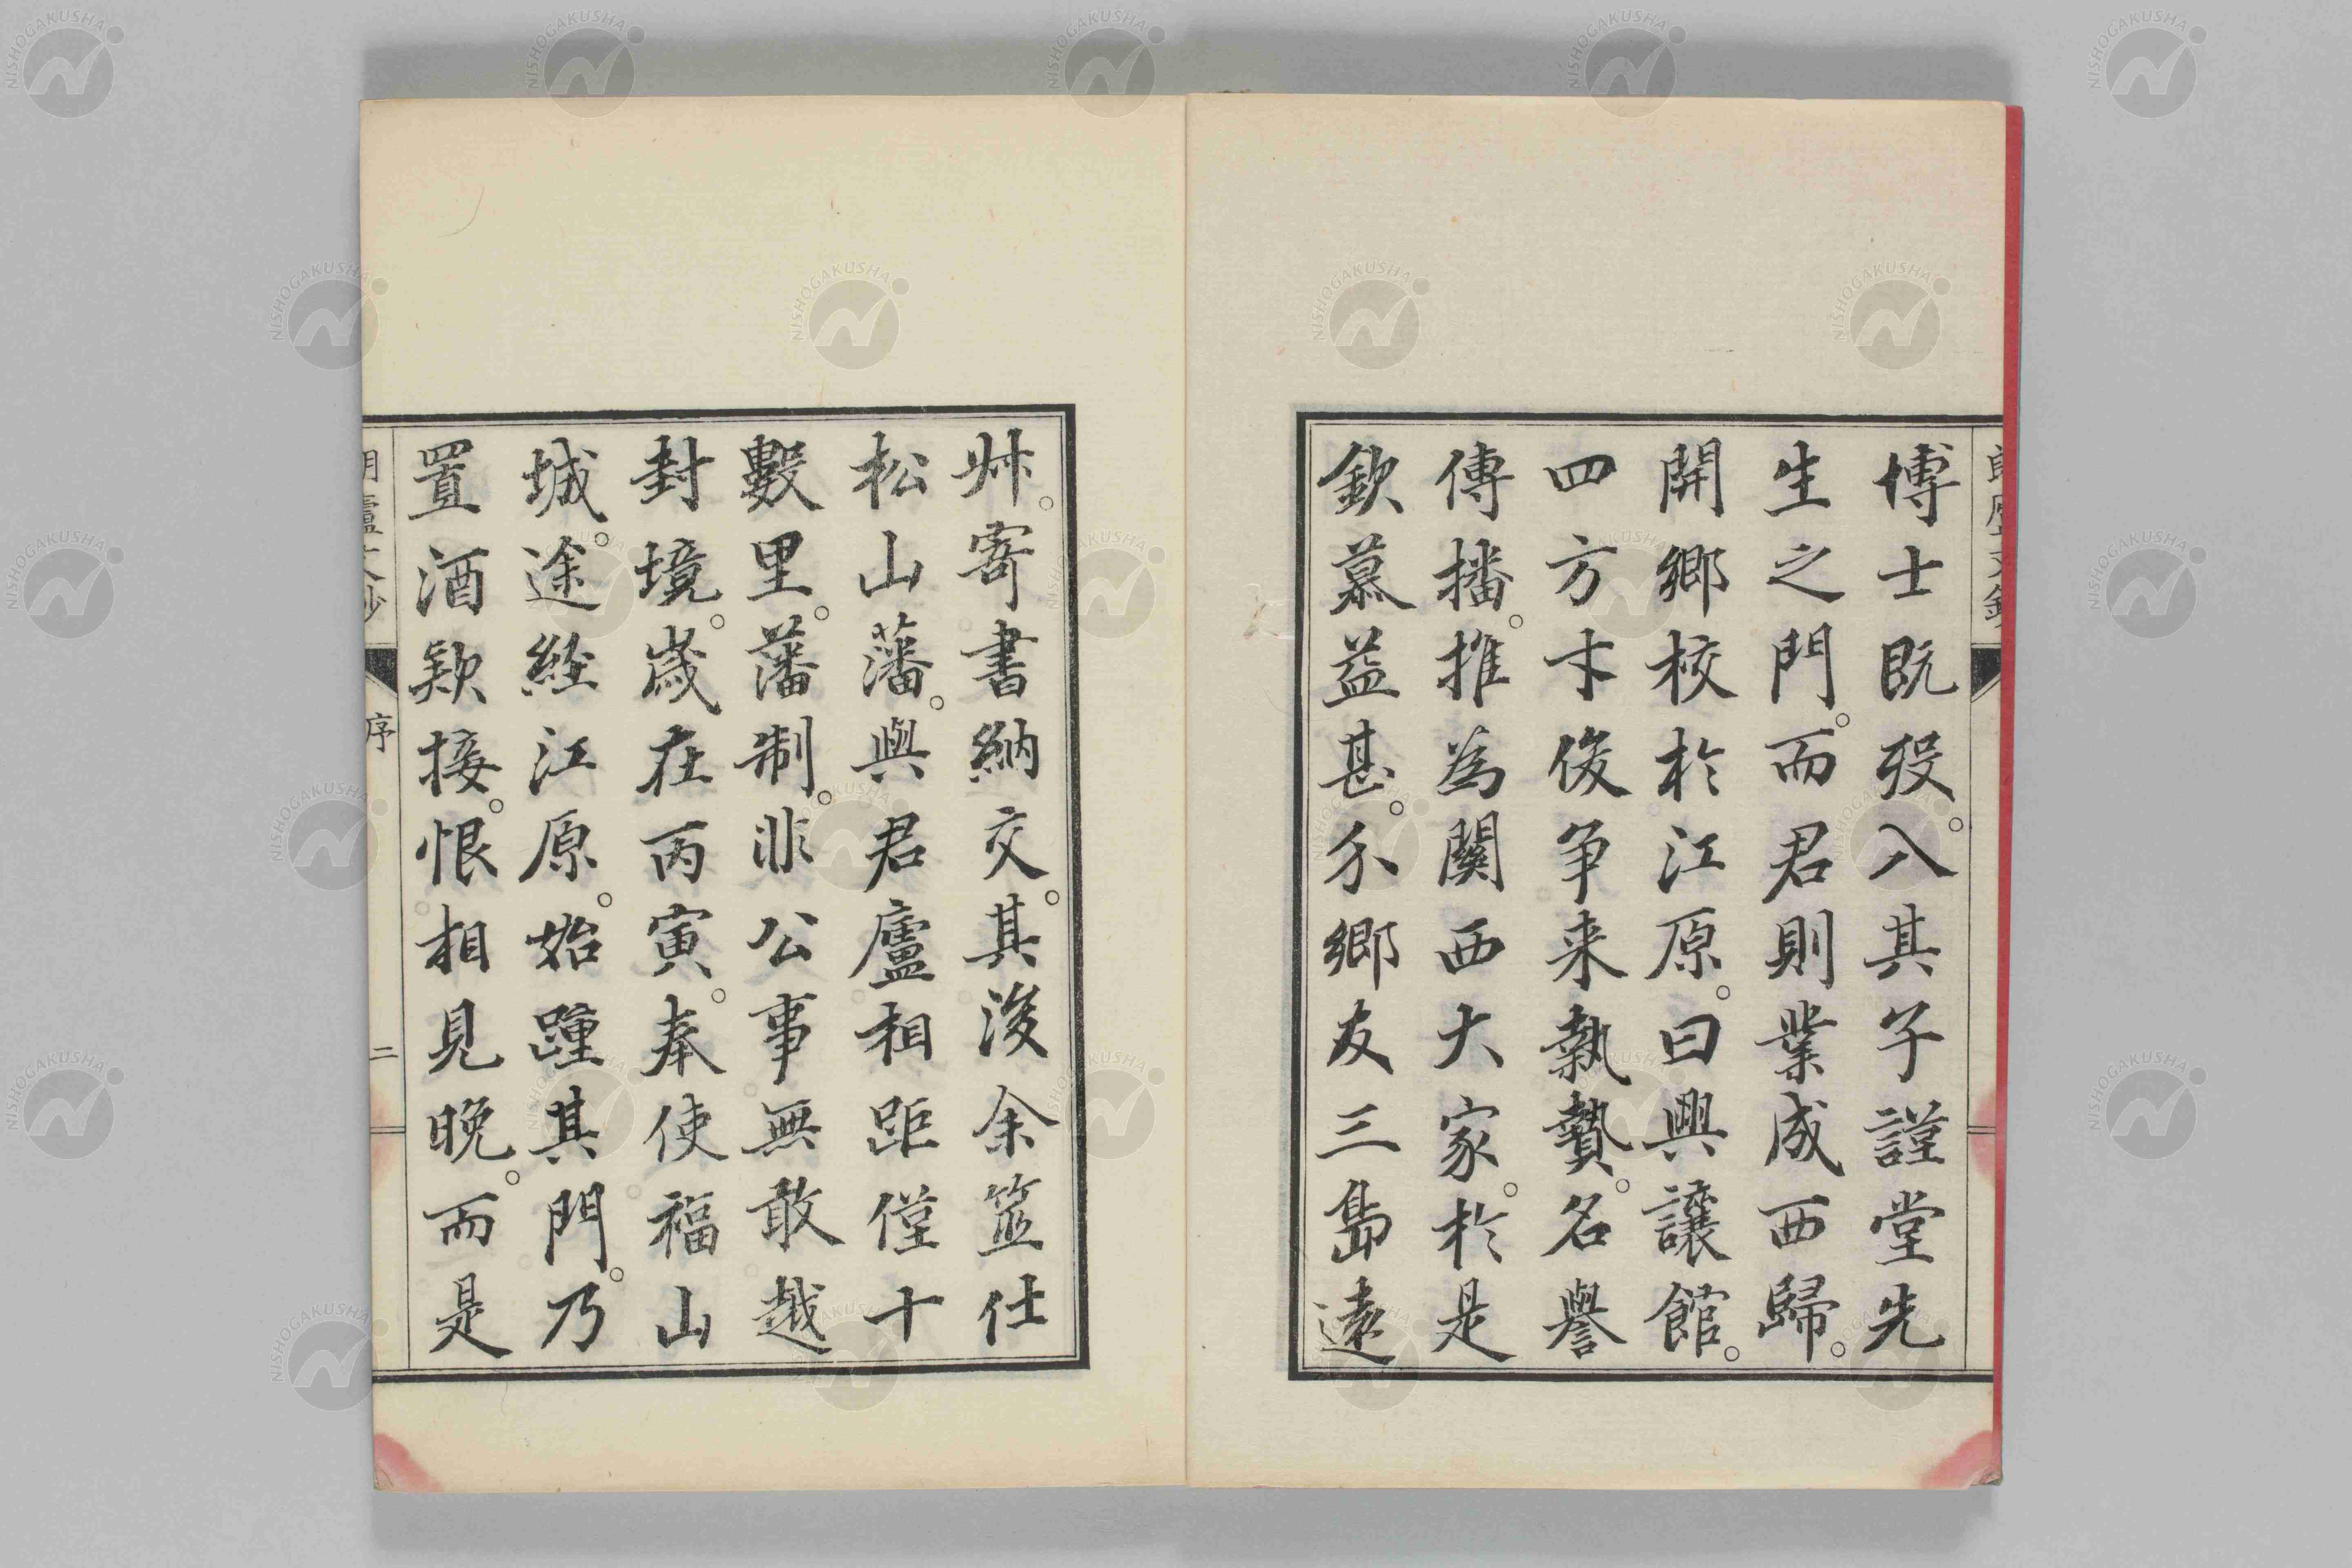 博士既歿。入其子謹堂先
生之門。而君則業成西歸。
開鄉校於江原。曰興讓館。
四方才俊爭来執贄。名譽
傳播。推為關西大家。於是
欽慕益甚。介鄉友三島遠
艸。寄書納交。其後余筮仕
松山藩。與君廬相距僅十
數里。藩制。非公事無敢越
封境。歲在丙寅。奉使福山
城。途經江原。始踵其門。乃
置酒欵接。恨相見晚。而是
序
二
NISHOGAKUSHA